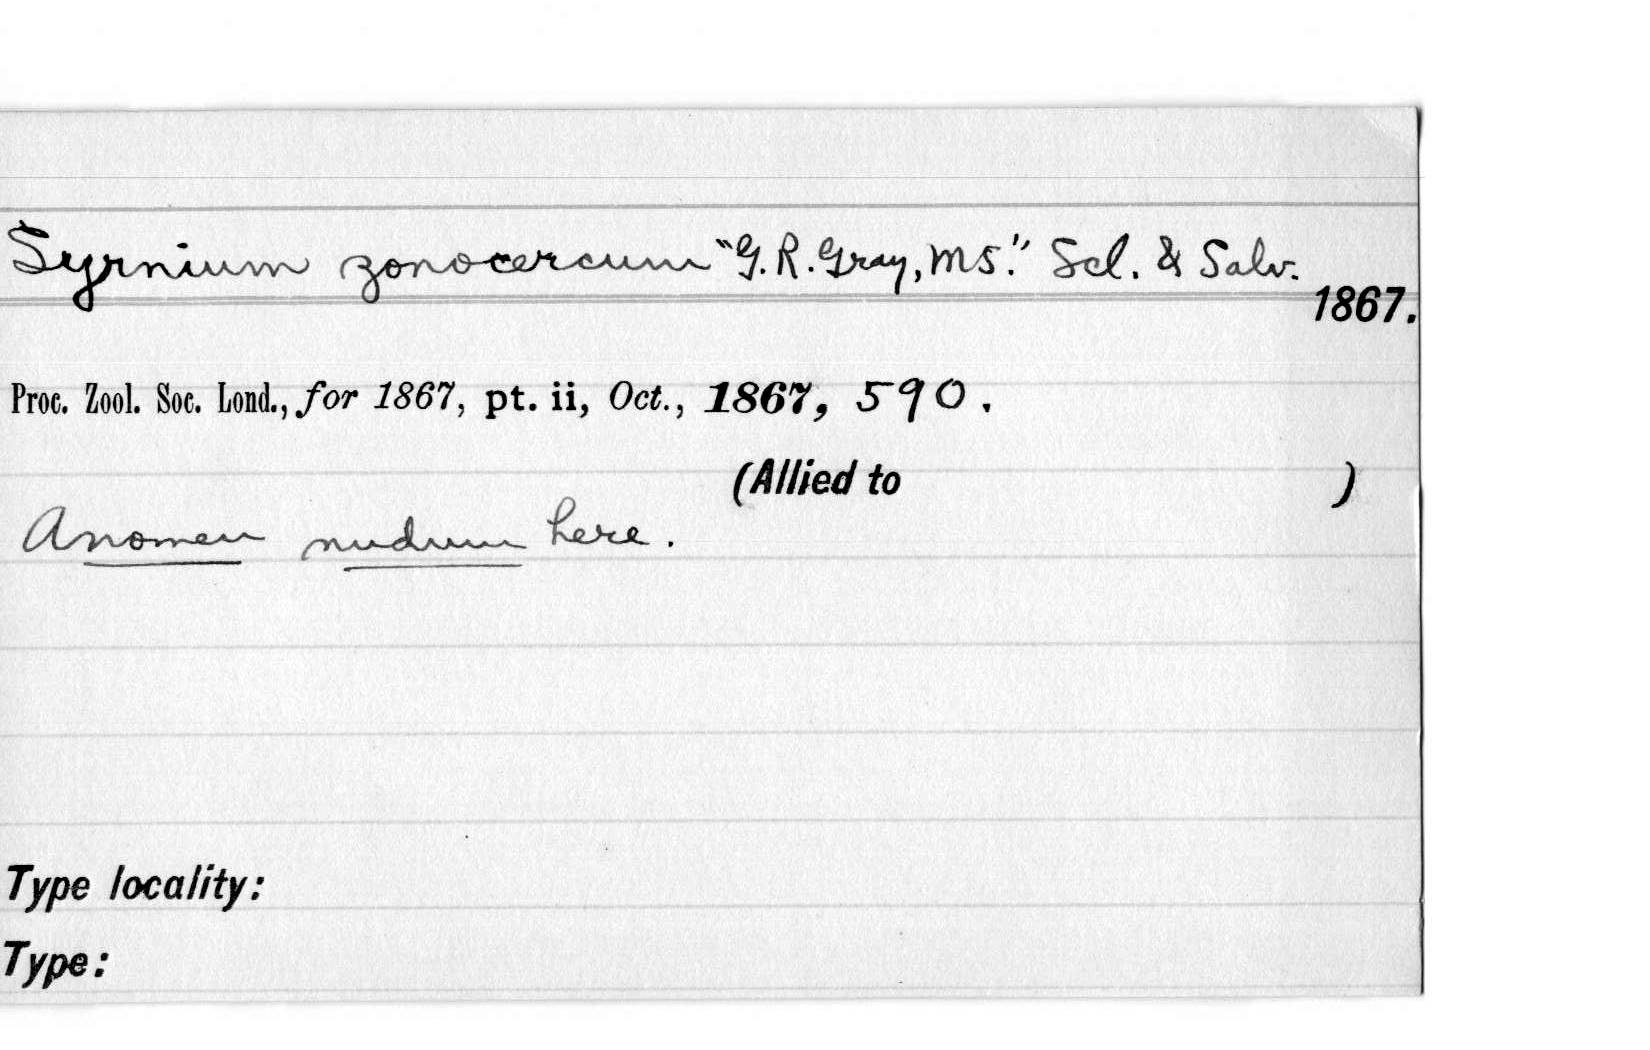 Syrnium zonocercum "G.R. Gray, MS." Scl. & Salv.
1867.
Proc. Zool. Soc. Lond., for 1867, pt. ii, Oct., 1867, 590.
(Allied to )
A nomen nudum here.
Type locality:
Type: